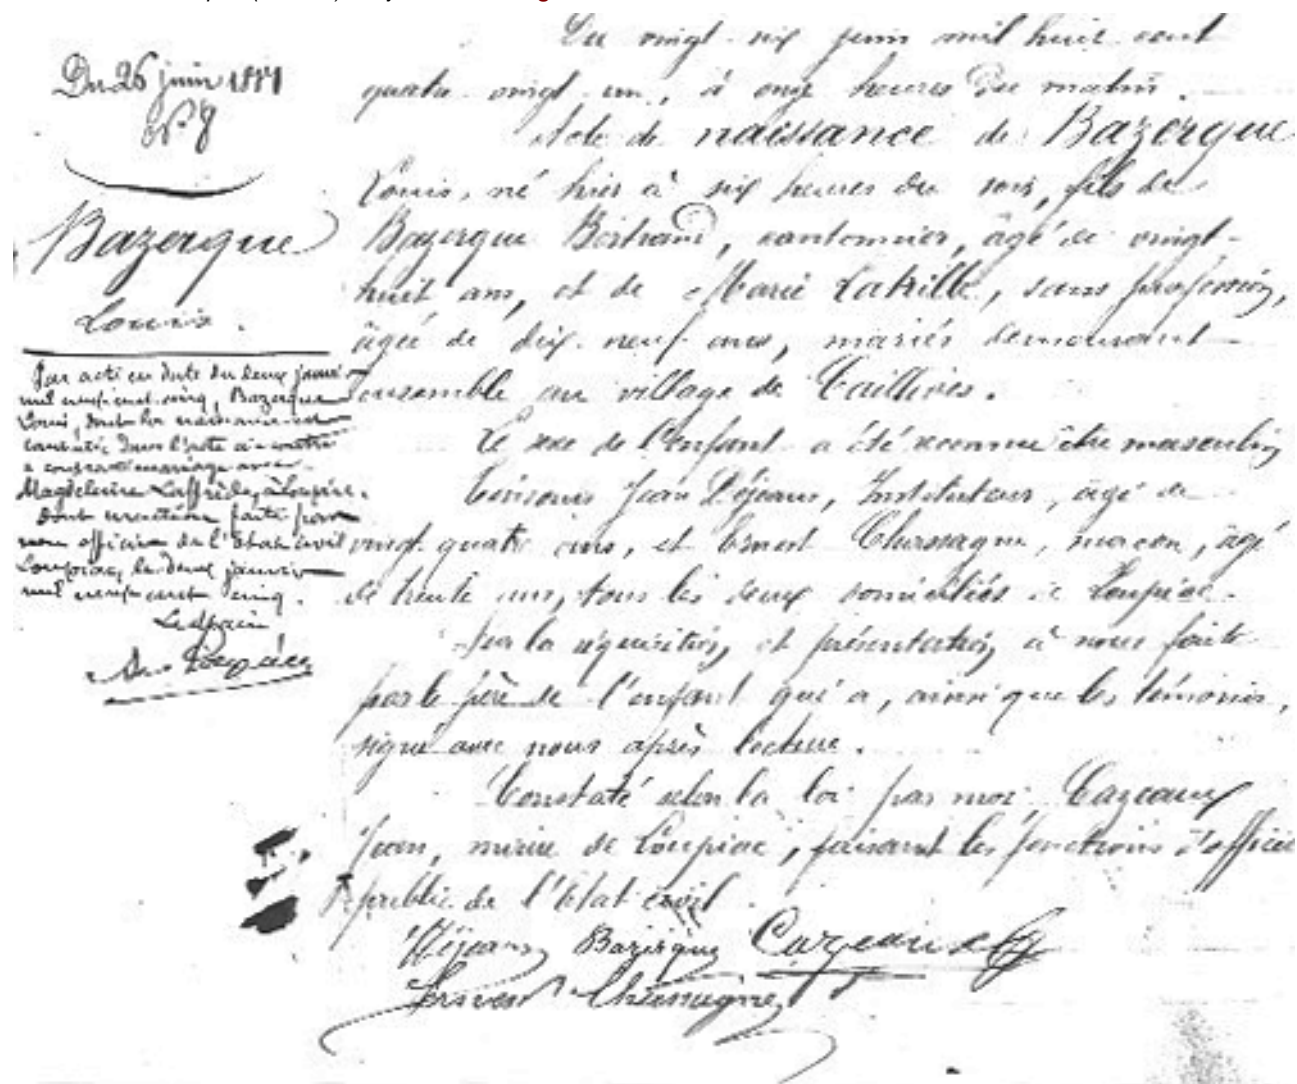 Du 26 juin 1881
N° 8
Bazergue
Louis.
Par acte en date du deux janvier
mil neuf cent cinq, Bazergue
Louis, dont la naissance est
constatée dans l'acte ci-contre
a contracté mariage avec
Magdeleine à Loupiac.
Dont mention faite par
nous officier de l'état civil
Loupiac, le deux janvier
mil neuf cent cinq.
Le Maire
Du vingt six juin mil huit cent
quatre vingt un, à onze heures du matin.
Acte de naissance de Bazergue
Louis, né hier à six heures du soir, fils de
Bazergue Bertrand, cantonnier, âgé de vingt-
huit ans, et de Marie Latrille, sans profession,
âgée de dix-neuf ans, mariés demeurant
ensemble au village de
Le sexe de l'enfant a été reconnu être masculin
Témoins Jean Déjeans, Instituteur, âgé de
vingt quatre ans, et Ernest Chassagne, maçon, âgé
de trente ans, tous les deux domiciliés à Loupiac.
Sur la réquisition, et présentation, à nous faite
par le père de l'enfant qui a, ainsi que les témoins,
signé avec nous après lecture.
Constaté selon la loi par moi, Cazeaux
Jean, maire de Loupiac, faisant les fonctions d'officier
public de l'état civil.
Déjeans Bazergue Cazeaux
Chassagne